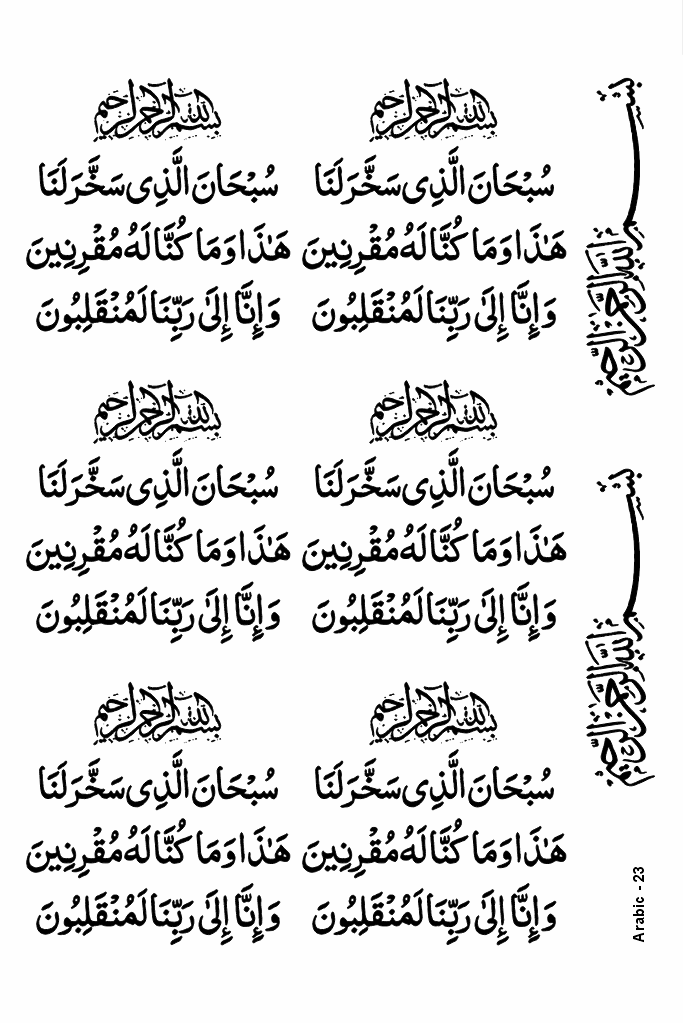 بسم الله الرحمن الرحيم
سُبْحَانَ الَّذِى سَخَّرَ لَنَا
هَـٰذَا وَمَا كُنَّا لَهُ مُقْرِنِينَ
وَإِنَّا إِلَىٰ رَبِّنَا لَمُنْقَلِبُونَ
بسم الله الرحمن الرحيم
سُبْحَانَ الَّذِى سَخَّرَ لَنَا
هَـٰذَا وَمَا كُنَّا لَهُ مُقْرِنِينَ
وَإِنَّا إِلَىٰ رَبِّنَا لَمُنْقَلِبُونَ
بسم الله الرحمن الرحيم
سُبْحَانَ الَّذِى سَخَّرَ لَنَا
هَـٰذَا وَمَا كُنَّا لَهُ مُقْرِنِينَ
وَإِنَّا إِلَىٰ رَبِّنَا لَمُنْقَلِبُونَ
بسم الله الرحمن الرحيم
سُبْحَانَ الَّذِى سَخَّرَ لَنَا
هَـٰذَا وَمَا كُنَّا لَهُ مُقْرِنِينَ
وَإِنَّا إِلَىٰ رَبِّنَا لَمُنْقَلِبُونَ
بسم الله الرحمن الرحيم
سُبْحَانَ الَّذِى سَخَّرَ لَنَا
هَـٰذَا وَمَا كُنَّا لَهُ مُقْرِنِينَ
وَإِنَّا إِلَىٰ رَبِّنَا لَمُنْقَلِبُونَ
بسم الله الرحمن الرحيم
سُبْحَانَ الَّذِى سَخَّرَ لَنَا
هَـٰذَا وَمَا كُنَّا لَهُ مُقْرِنِينَ
وَإِنَّا إِلَىٰ رَبِّنَا لَمُنْقَلِبُونَ
بسم الله الرحمن الرحيم
بسم الله الرحمن الرحيم
Arabic - 23